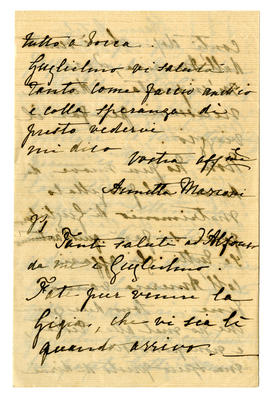 tutto a Tocca.
Guglielmo vi saluta
tanto come faccio anch'io
e colla speranza di
presto vederve
mi dico
Vostra affma
Annetta Marconi
PS
Tanti saluti a d'Alfonso
da me e Guglielmo.
Fate pur venire la
Gigia, che vi sia lì
quando arrivo